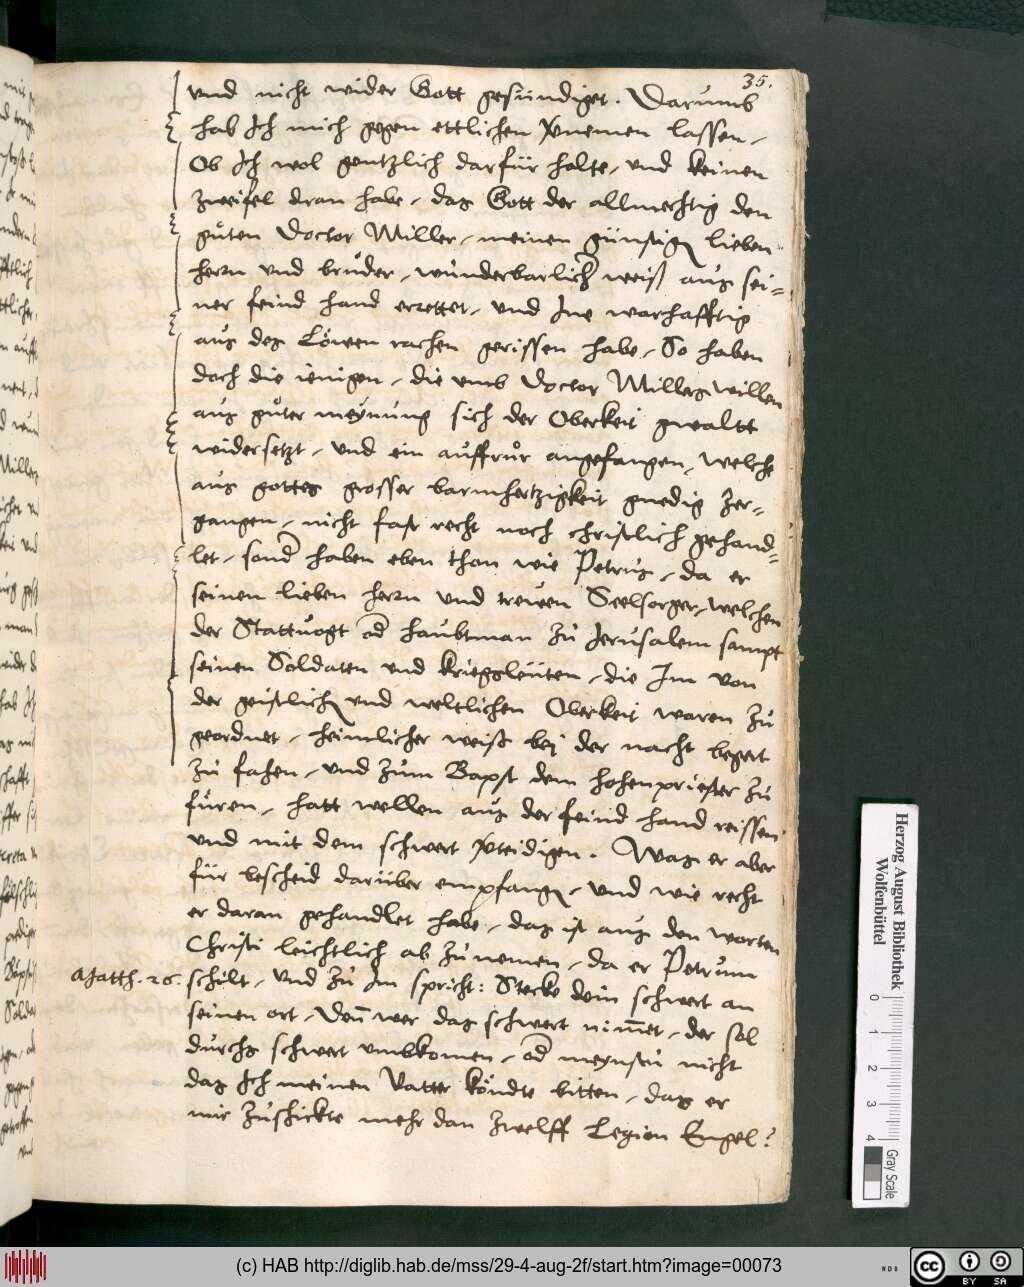 35.
vnd nicht wider Gott gesündiget. Darumb
hab Ich mich gegen ettlichen vernemen lassen,
Ob Ich wol gentzlich darfür halte, vnd keinen
zweifel dran habe, das Gott der allmechtig den
gůten Doctor Miller, meinen günstigen lieben
herrn vnd brůder, wunderbarlicher weiß aus sei=
ner feind hand errettet, vnd Ine warhafftig
aus des Löwen rachen gerissen habe, So haben
doch die ienigen, die vmb Doctor Millers willen
aus gůter meynung sich der Oberkeit gwaltt
widersetzt, vnd ein auffrůr angefangen, welche
aus gottes grosser barmhertzigkeit gnedig zer=
gangen, nicht fast recht noch christlich gehand=
let, sonder haben eben than wie Petrus, da er
seinen lieben herrn vnd trewen Seelsorger, welchen
der Stattuogt oder haubtman zů Jerusalem sampt
seinen Soldaten vnd kriegsleüten, die Im von
der geistlichen vnd weltlichen Oberkeit waren zů
geordnet, heimlicher weiß bej der nacht begert
zů fahen, vnd zům Bapst dem hohenpriester zů
füren, hatt wellen aus der feind hand reissen
vnd mit dem schwert verteidigen. Was er aber
für bescheid darüber empfangen, vnd wie recht
er daran gehandlet habe, das ist aus den worten
Christi leichtlich ab zůnemen, da er Petrum
Matth. 26. schilt, vnd zů Im spricht: Stecke dein schwert an
seinen ort, Denn wer das schwert nimmet, der sol
durchs schwert vmbkomen, oder meynstu nicht
das Ich meinen Vatter köndte bitten, das er
mir zůschickte mehr dan zwelff Legion Engel?
Herzog August Bibliothek
Wolfenbüttel
0 1 2 3 4
Gray Scale
(c) HAB http://diglib.hab.de/mss/29-4-aug-2f/start.htm?image=00073
cc BY SA